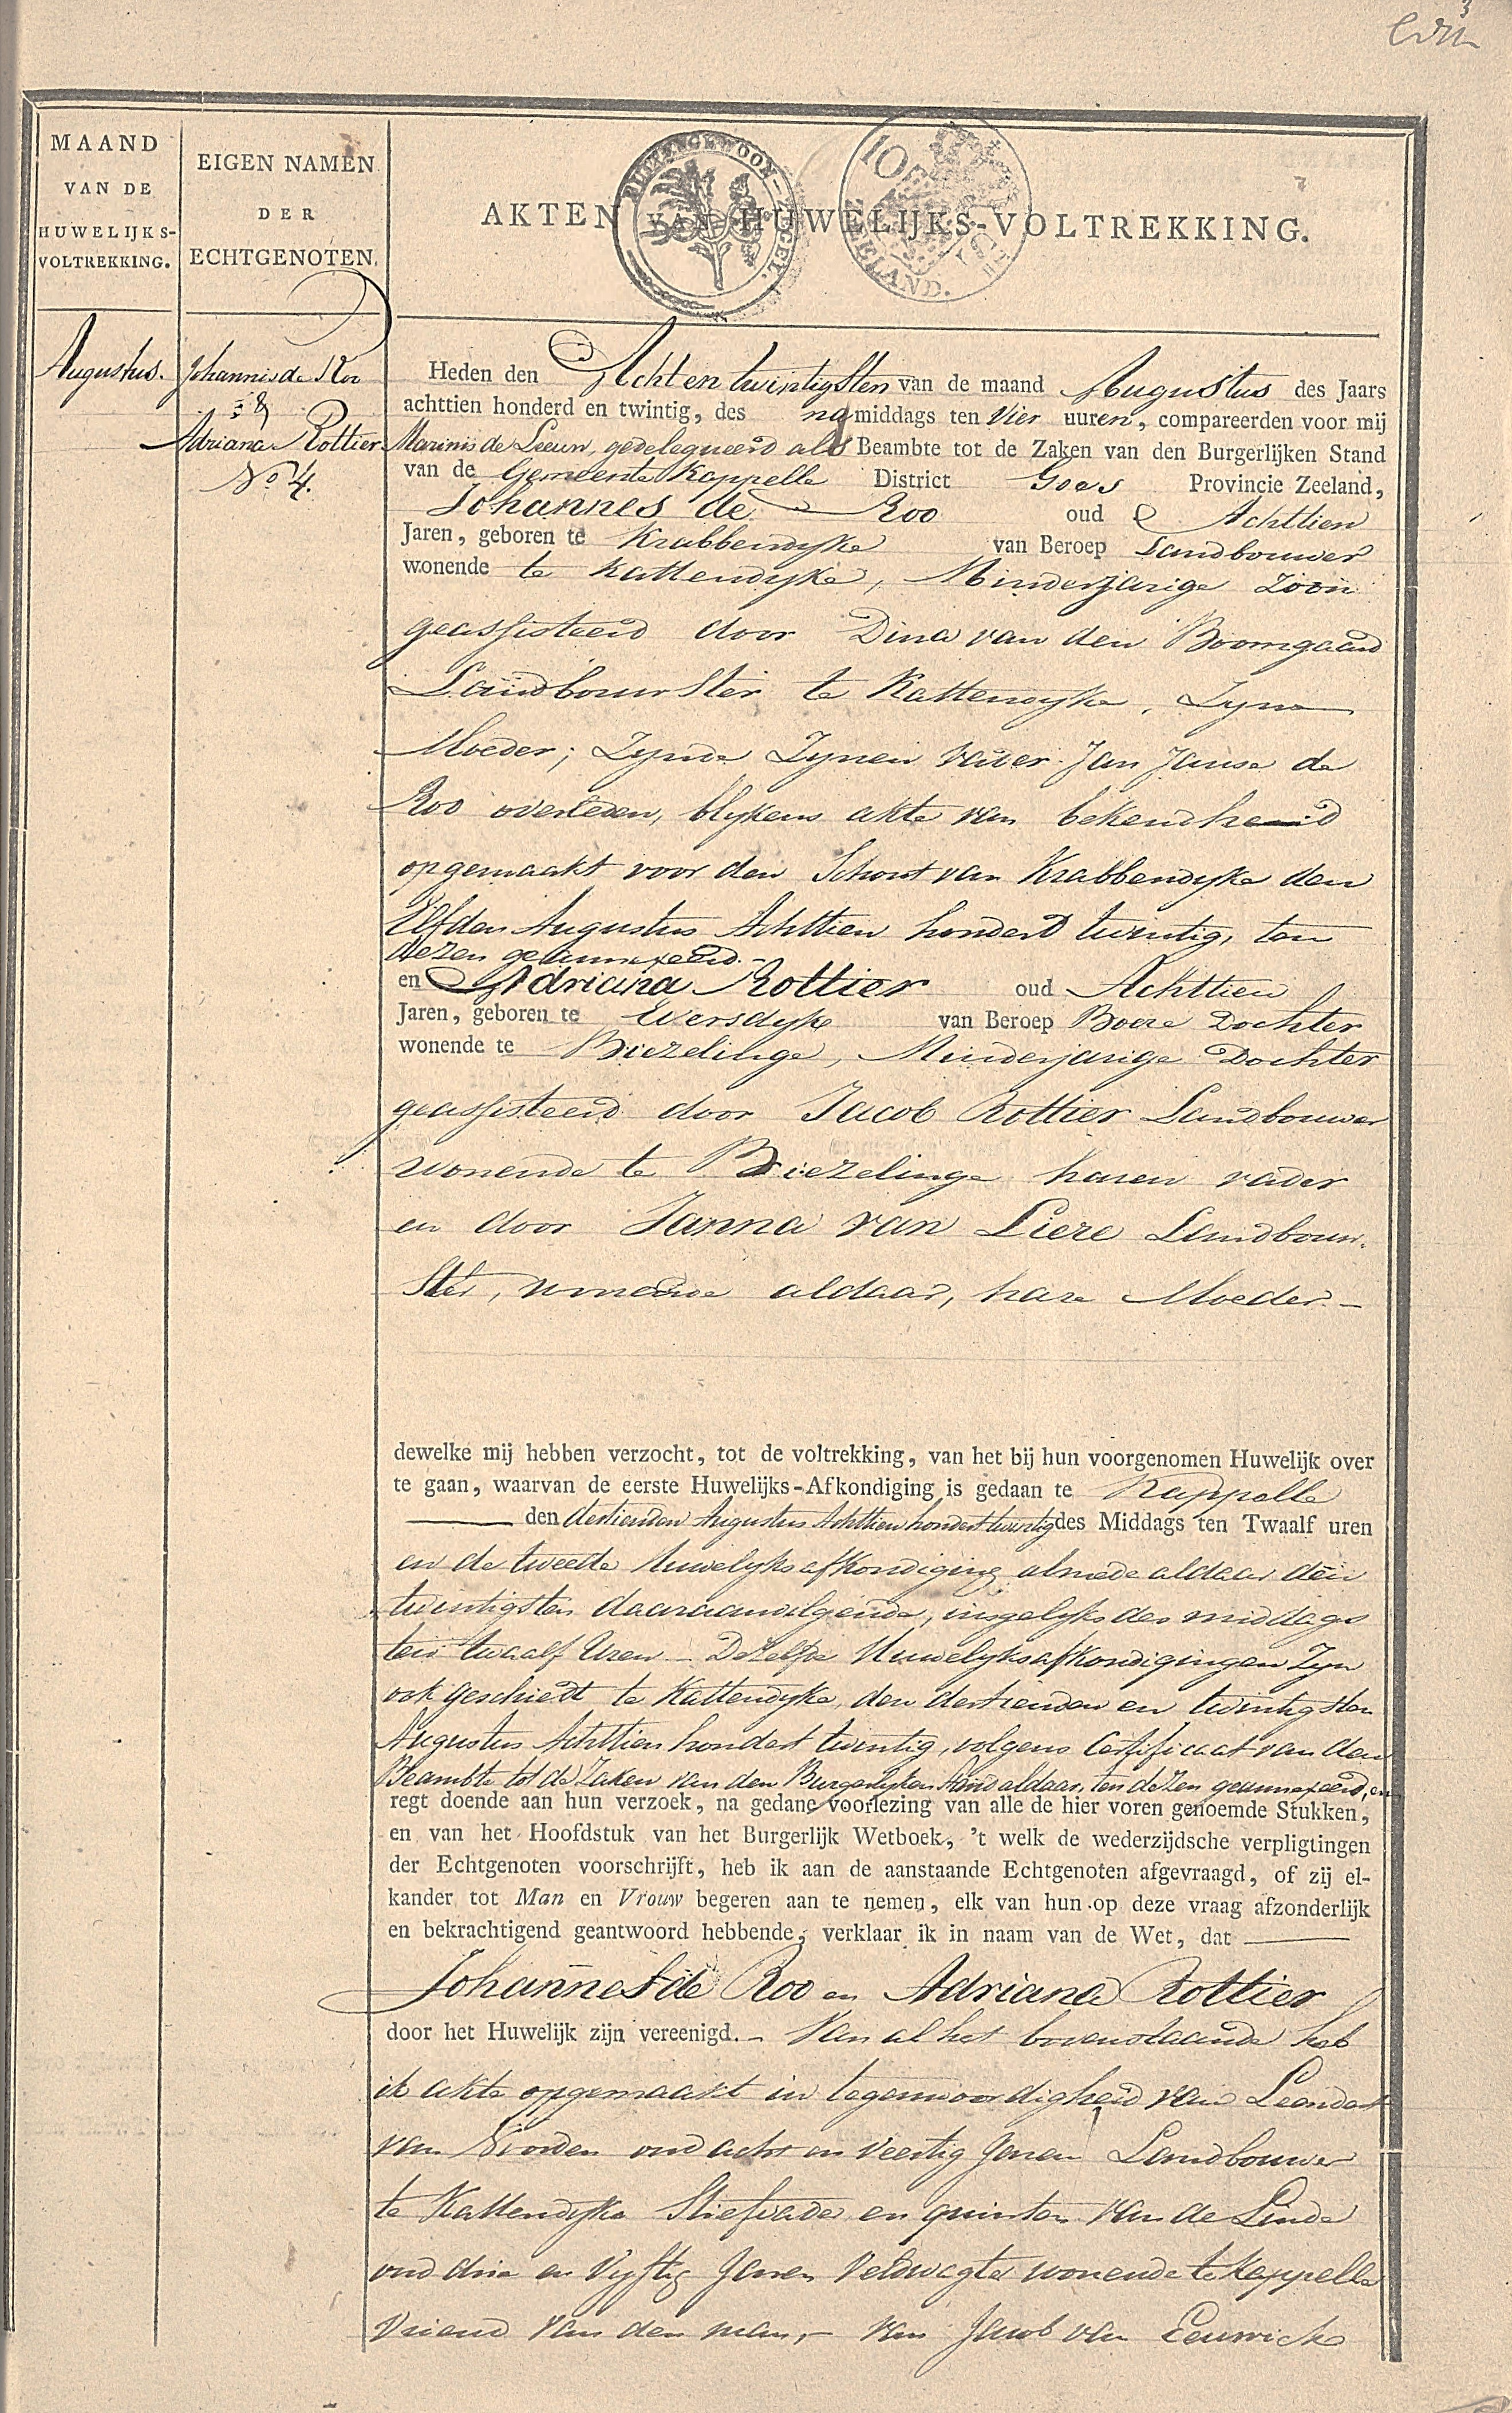 MAAND
VAN DE
HUWELIJKS-
VOLTREKKING.
EIGEN NAMEN
DER
ECHTGENOTEN.
BUITENGEWOON-ZEGEL.
ZEELAND.
AKTEN VAN HUWELIJKS-VOLTREKKING.
Augustus.
Johannis de Roo
&
Adriana Rottier
No 4.
Heden den Acht en twintigsten van de maand Augustus des Jaars
achttien honderd en twintig, des namiddags ten Vier uuren, compareerden voor mij
Marinis de Leeuw, gedelegueerd als Beambte tot de Zaken van den Burgerlijken Stand
van de Gemeente Kappelle District Goes Provincie Zeeland,
Johannes de Roo oud Achttien
Jaren, geboren te Krabbendyke van Beroep Landbouwer
wonende te Kattendyke, Minderjarige Zoon
geassisteerd door Dina van den Boomgaard
Landbouwster te Kattendyke, Zyne
Moeder; Zynde Zynen Vader Jan Janse de
Roo overleden, blykens akte van bekendheid
opgemaakt voor den Schout van Krabbendyke den
Elfden Augustus Achttien hondert twintig, ten
dezen geannexeerd.-
en Adriana Rottier oud Achttien
Jaren, geboren te Eversdyk van Beroep Boere Dochter
wonende te Biezelinge, Minderjarige Dochter
geassisteerd door Jacob Rottier Landbouwer
wonende te Biezelinge haren vader
en door Janna van Liere Landbouw-
ster, wonende aldaar, hare Moeder.-
dewelke mij hebben verzocht, tot de voltrekking, van het bij hun voorgenomen Huwelijk over
te gaan, waarvan de eerste Huwelijks-Afkondiging is gedaan te Kappelle
den dertienden Augustus Achttien hondert twintig des Middags ten Twaalf uren
en de tweede huwelyks afkondiging almede aldaar den
twintigsten daaraanvolgende, insgelyks des middags
ten twaalf Uren - Dezelfde Huwelyksafkondigingen Zyn
ook geschiedt te Kattendyke, den dertienden en twintigsten
Augustus Achttien hondert twintig, volgens Certificaat van den
Beambte tot de Zaken van den Burgerlyken Stand aldaar, ten dezen geannexeerd, en
regt doende aan hun verzoek, na gedane voorlezing van alle de hier voren genoemde Stukken,
en van het Hoofdstuk van het Burgerlijk Wetboek, 't welk de wederzijdsche verpligtingen
der Echtgenoten voorschrijft, heb ik aan de aanstaande Echtgenoten afgevraagd, of zij el-
kander tot Man en Vrouw begeren aan te nemen, elk van hun op deze vraag afzonderlijk
en bekrachtigend geantwoord hebbende, verklaar ik in naam van de Wet, dat
Johannes de Roo en Adriana Rottier
door het Huwelijk zijn vereenigd.- Van al het bovenstaande heb
ik akte opgemaakt in tegenwoordigheid van Leendert
van oud acht en Veertig Jaren Landbouwer
te Kattendyke Stiefvader en quinten van de Linde
oud drie en Vyftig Jaren Veldwagter wonende te Kappelle
Vriend van den man,- van Jacob van Eeuwick